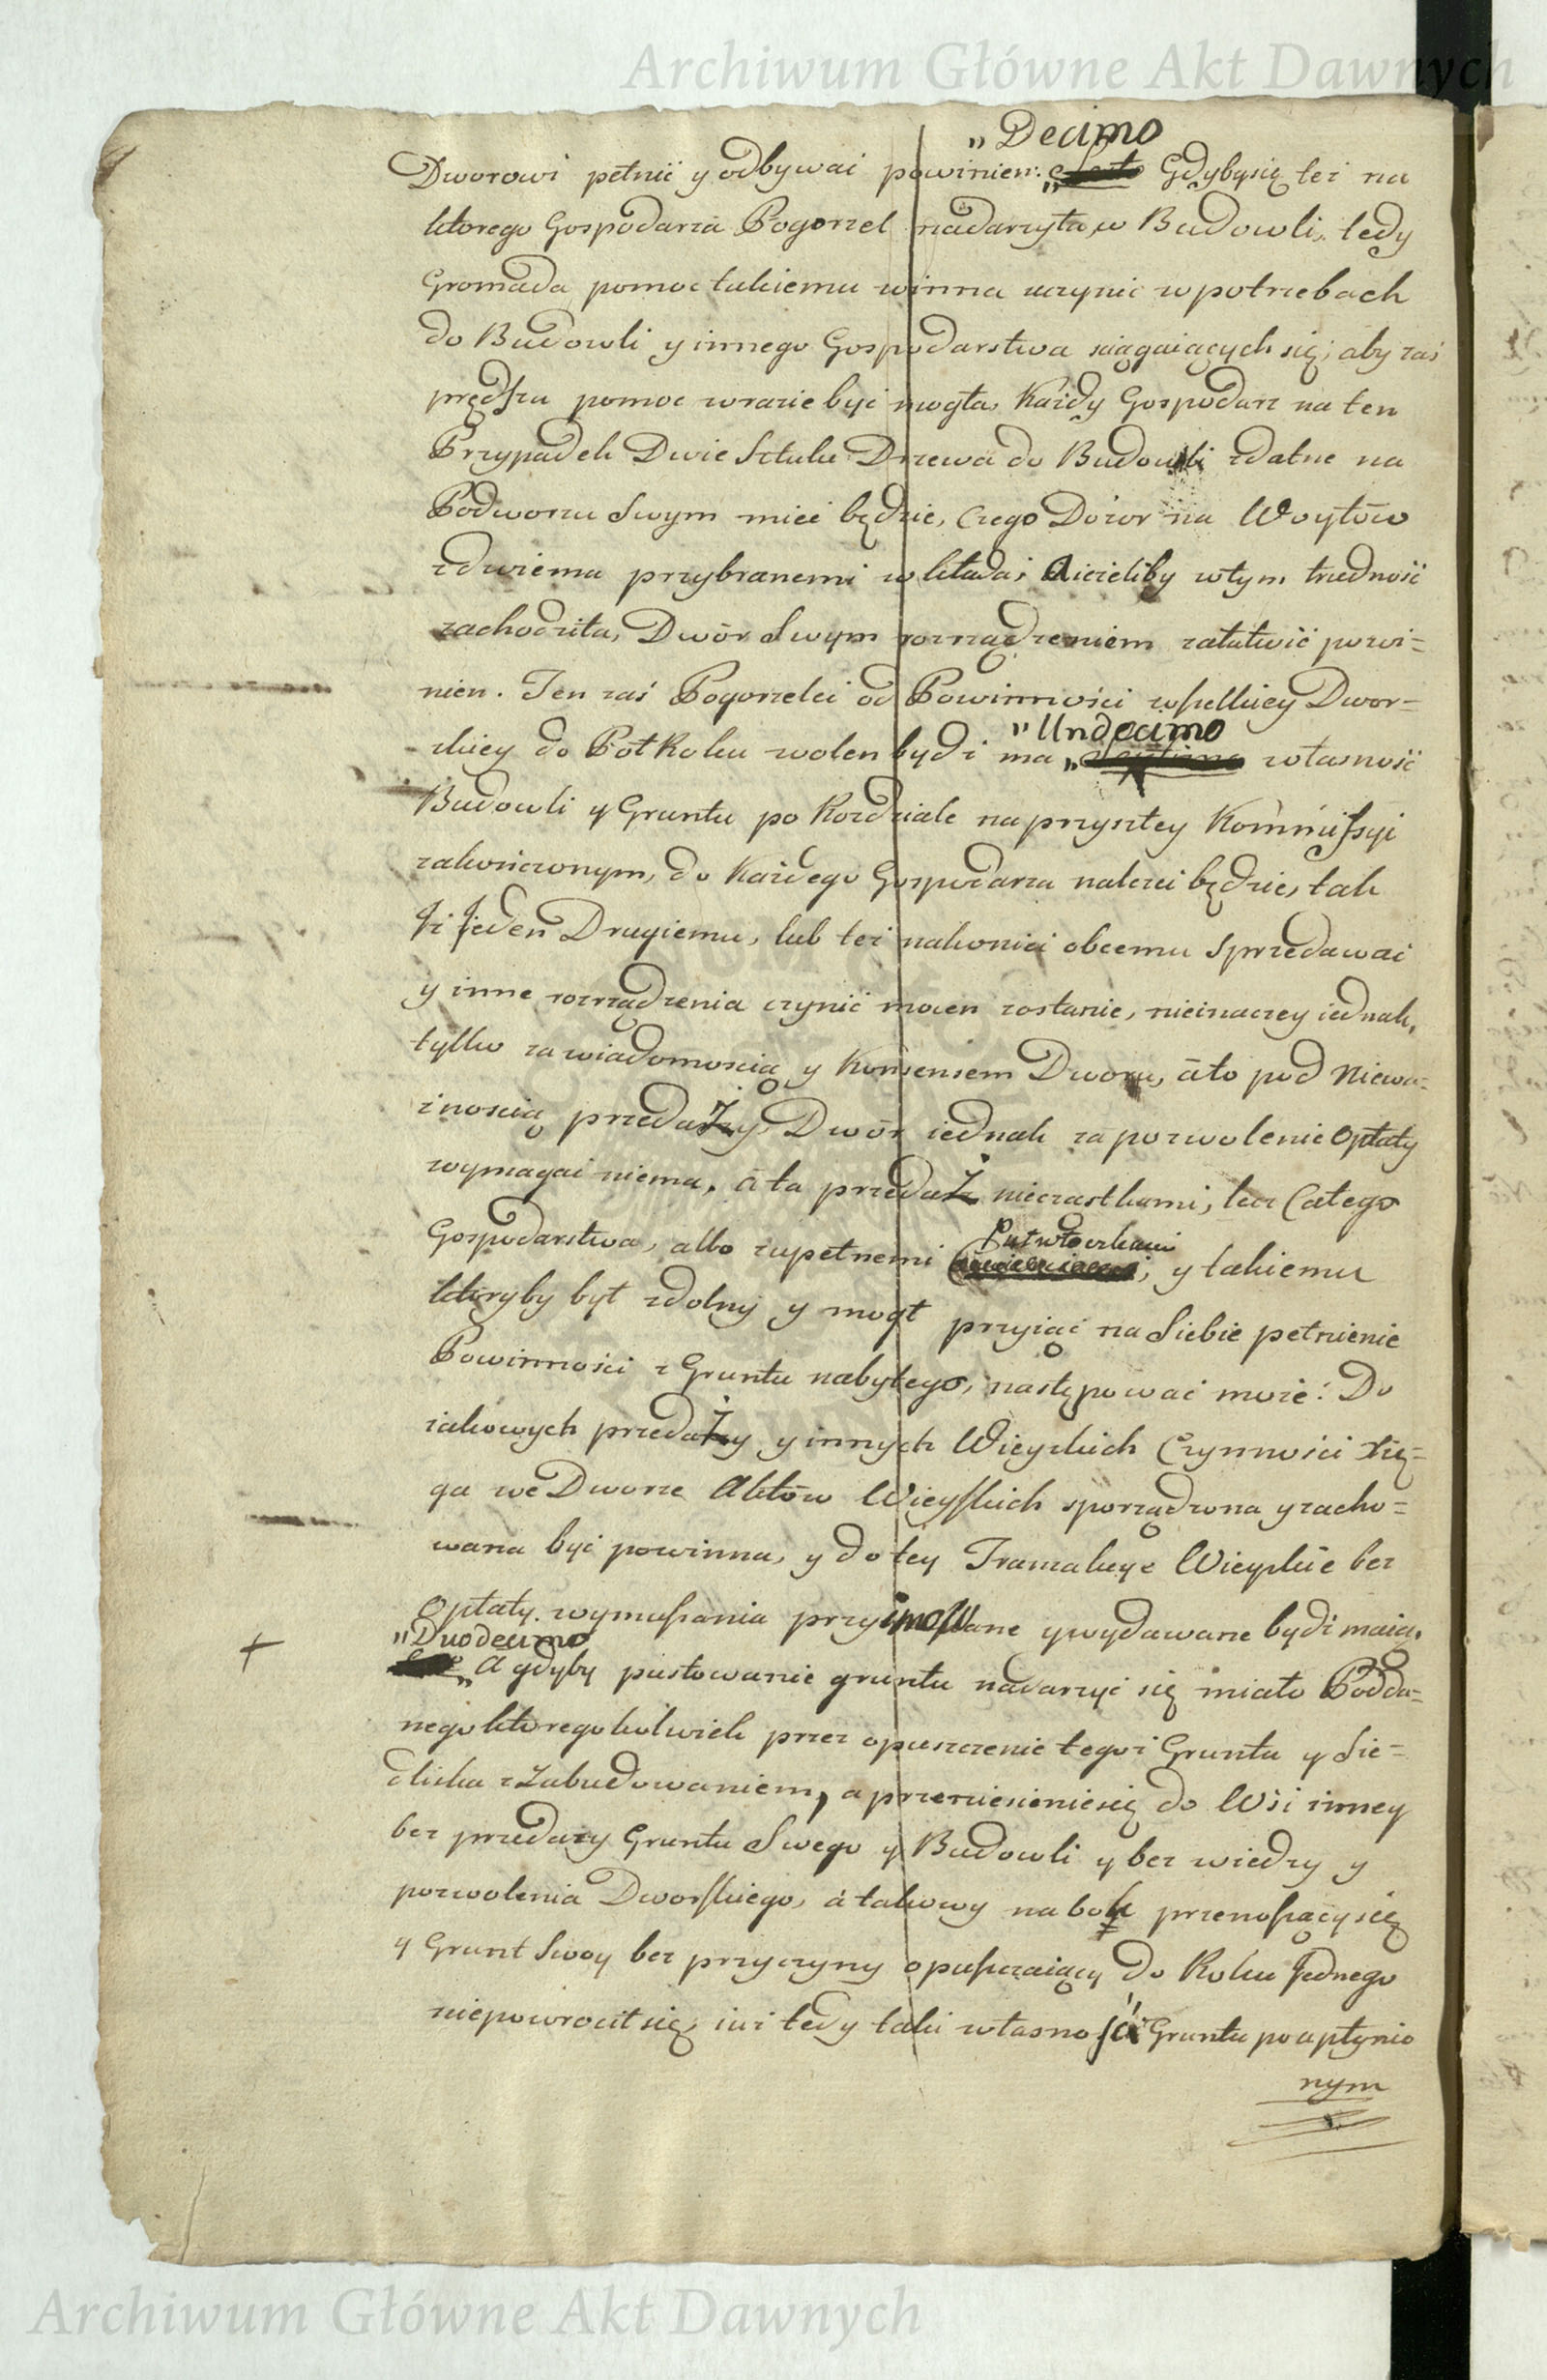 Archiwum Główne Akt Dawnych
„Decimo
Dworowi pełnić y odbywać powinien: Gdybysię też na
ktorego Gospodarza Pogorzel nadarzyła, w Budowli, tedy
Gromada pomoc takiemu winna uczynić w potrzebach
do Budowli y innego Gospodarstwa sciągaiących się; aby zaś
prędsza pomoc wrazie być mogła, Każdy Gospodarz na ten
Przypadek Dwie Sztuki Drzewa do Budowli zdatne na
Podworzu Swym mieć będzie, czego Dozor na Woytów
zdwiema przybranemi wkłada; A ieżeliby wtym trudność
zachodziła, Dwór Swym rozrządzeniem załatwić powi=
nien. Ten zaś Pogorzelec od Powinności wszelkiey Dwor=
skiey do Pół Roku wolen bydź ma
„Undecimo
„ własność
Budowli y Gruntu po Rozdziale na przyszłey Kommissyi
zakończonym, do Każdego Gospodarza należeć będzie, tak
Iż Jeden Drugiemu, lub też nakoniec obcemu sprzedawać
y inne rozrządzenia czynić mocen zostanie, nieinaczey iednak,
tylko za wiadomością y Konsensem Dworu, á to pod Niewa=
żnością przedaży, Dwór iednak za pozwolenie Opłaty
wymagać niema, á ta przedaż nieczastkami, lecz Całego
Gospodarstwa, albo zupełnemi Pułwłoczkami, y takiemu
ktoryby był zdolny y mogł przyiąć na Siebie pełnienie
Powinności z Gruntu nabytego, następować może: Do
iakowych przedaży y innych Wieyskich Czynności xię=
ga we Dworze Aktów Wieyskich sporządzona y zacho=
wana być powinna, y do tey Tranzakcye Wieyskie bez
Opłaty wymuszania przyimowane y wydawane bydź maią,
„Duodecimo
„ A gdyby pustowanie gruntu nadarzyć się miało Podda=
nego ktoregokolwiek przez opuszczenie tegoż Gruntu y Sie=
dliska z Zabudowaniem, a przeniesieniesię do Wsi inney
bez przedazy Gruntu Swego y Budowli y bez wiedzy y
pozwolenia Dworskiego, á takowy na bok przenoszący się
y Grunt Swoy bez przyczyny opuszczaiący do Roku Jednego
niepowrocił się, iuż tedy taki własność Gruntu po upłynio
nym
Archiwum Główne Akt Dawnych